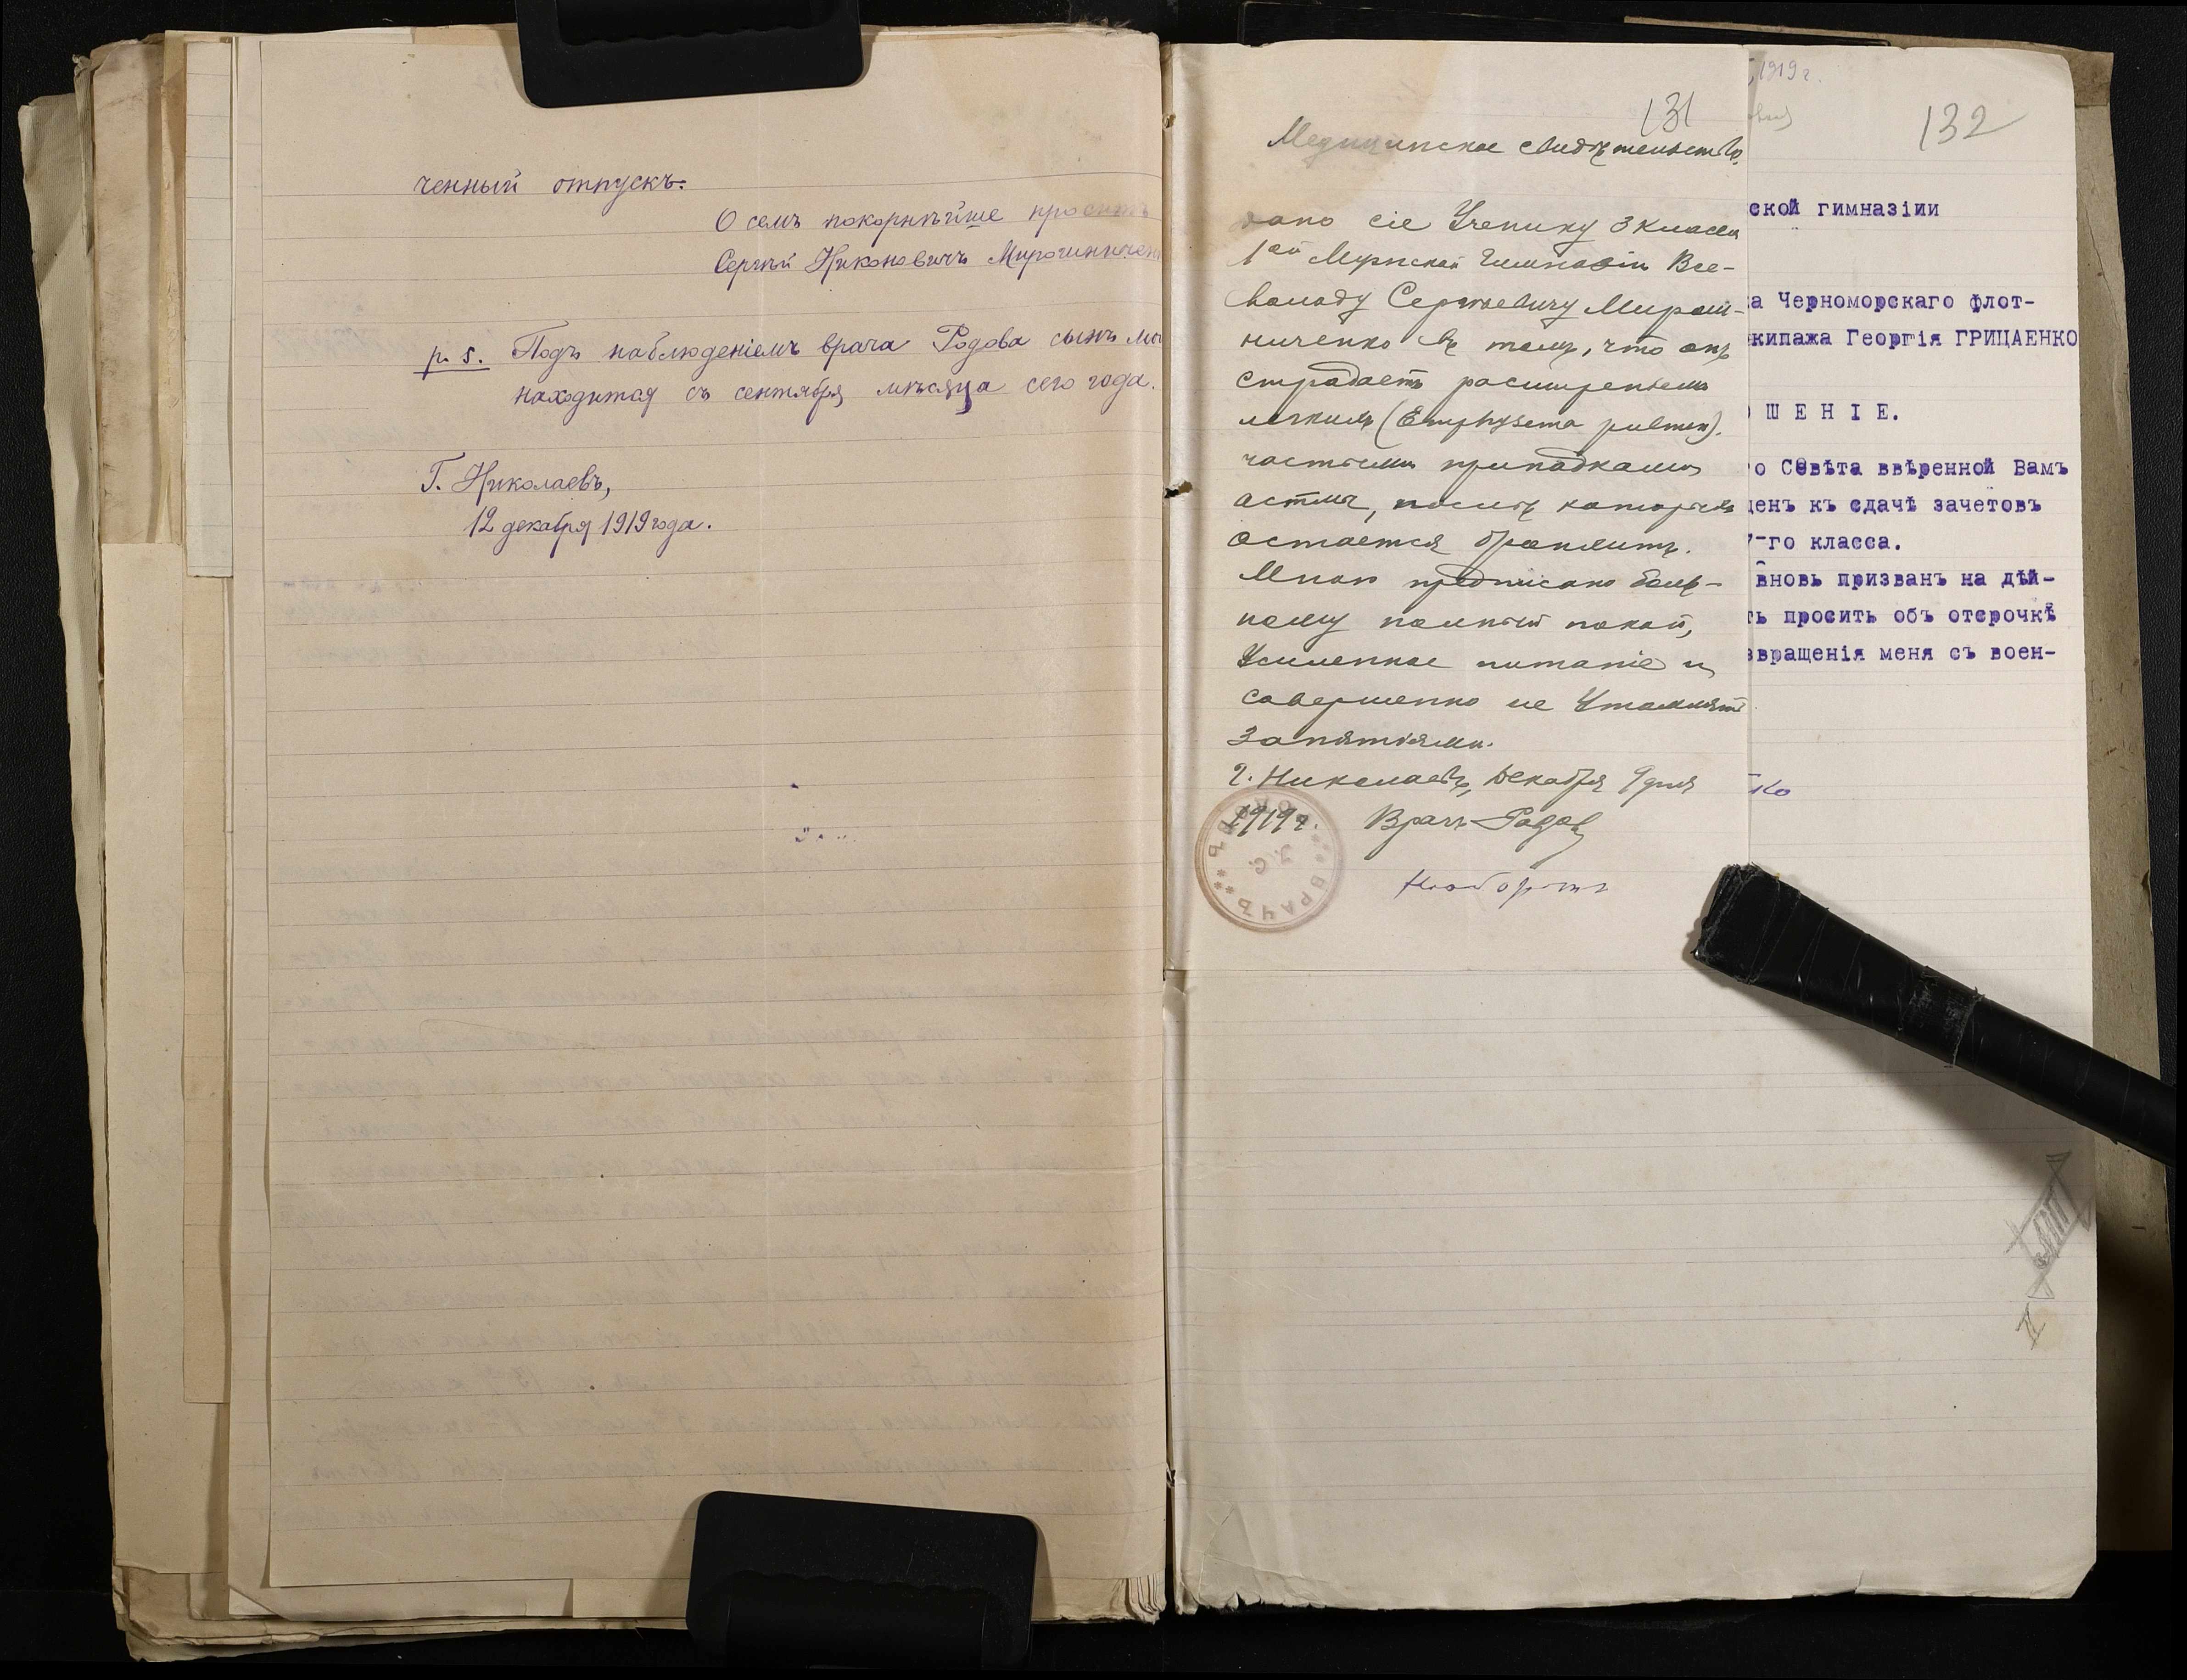 ченный отпускъ.
О семъ покорнѣйше проситъ
Сергѣй Никоновичъ Мирошниченк
p. s. Подъ наблюденіемъ врача Родова сынъ мой
находится съ сентября мѣсяца сего года.
Г. Николаевъ,
12 декабря 1919 года.
131
Медицинское свидѣтельство.
дано сіе Ученику 3 класса
1ой Мужской Гимназіи Все-
володу Сергѣевичу Мирош-
ниченко въ томъ, что онъ
страдаетъ расширеніемъ
легкихъ (Emphysema pulmon).
частыми припадками
астмы, послѣ которыхъ
остается бронхитъ.
Мною предписано боль-
ному полный покой,
Усиленное питаніе и
совершенно не Утомлять
Занятіями.
г. Николаевъ, Декабря 9 дня
1919 г. Врачъ Родов
ВРАЧЪ
Наоборотъ
1919 г.
132
ской гимназіии
ка Черноморскаго флот-
кипажа Георгія ГРИЦАЕНКО
ОШЕНІЕ.
о Совѣта ввѣренной Вамъ
енъ къ сдачѣ зачетовъ
7-го класса.
вновь призванъ на дѣй-
ть просить объ отсрочкѣ
звращенія меня съ воен-
ко